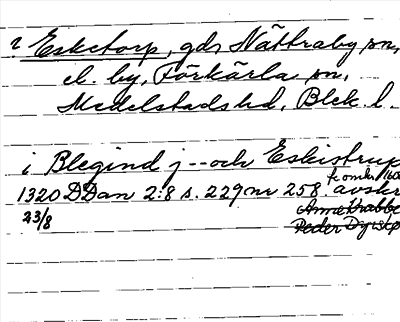 ? Esketorp, gdr Nättraby sn,
el. by, Förkärla sn,
Medelstads hd, Blek. l.
i Blegind j -- och Eskistrup
1320 DDan 2:8 s. 229 nr 258. avskr
fr omkr 1600
23/8
Anne Krabbe
Peder Dyrskø